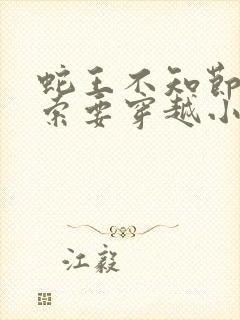 蛇王不知节
索要穿越小
江毅